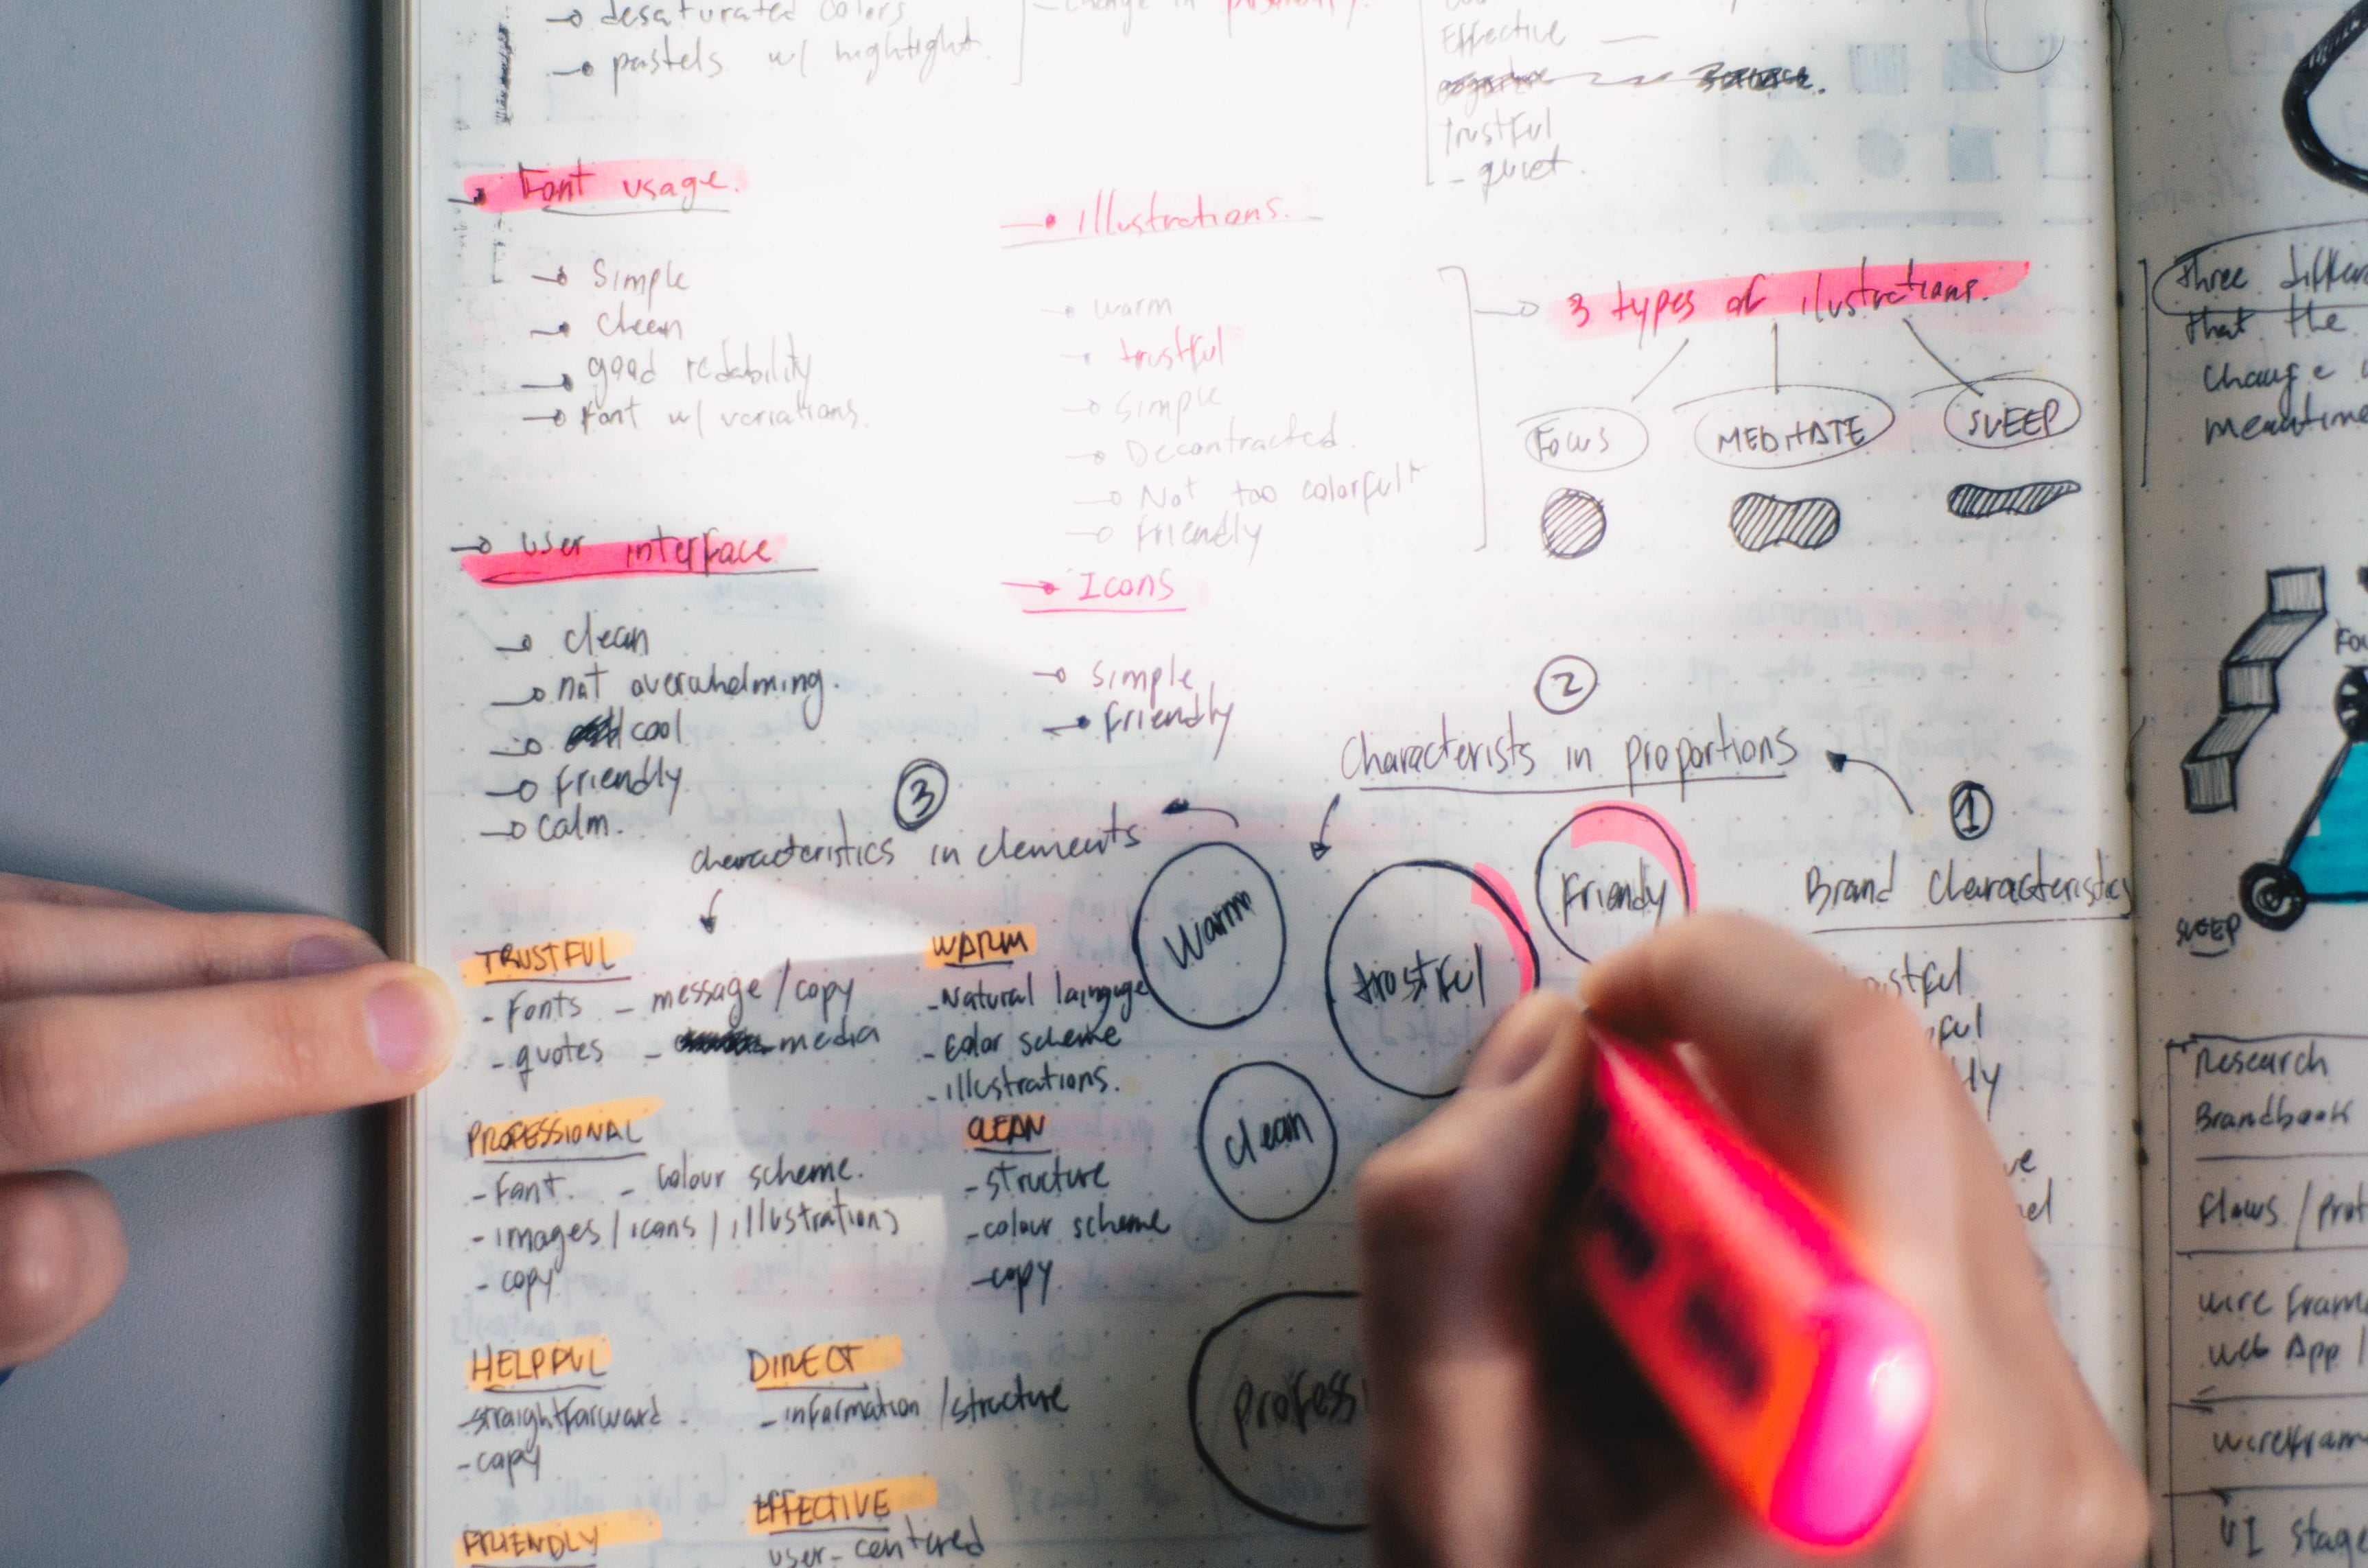 desaturated colors
pastels w/ hightight.
change in
Effective
trustful
- quiet.
Font usage.
Simple
clean
good redability
Font w/ variations.
illustrations.
warm
trustful
simple
Decontracted.
Not too colorful
Friendly
3 types of ilustrations.
Focus
MEDITATE
SLEEP
User interface
clean
not overwhelming.
cool
Friendly
calm.
Icons
simple
Friendly
2
Characterists in proportions
1
Brand Characteristics
3
characteristics in elements
Warm
trostful
Friendy
clean
TRUSTFUL
- Fonts - message/copy
- quotes - media
WARM
- Natural
- color scheme
- illustrations.
PROFESSIONAL
- Font. - colour scheme.
- images/icons/illustrations
- copy
CLEAN
- structure
- colour scheme
- copy
HELPFUL
- straightforward
- copy
DIRECT
- information/structure
FRIENDLY
EFFECTIVE
user-centered
three
that the
change
SLEEP
Research
Brandbook
Flows /
wire
web App /
UI